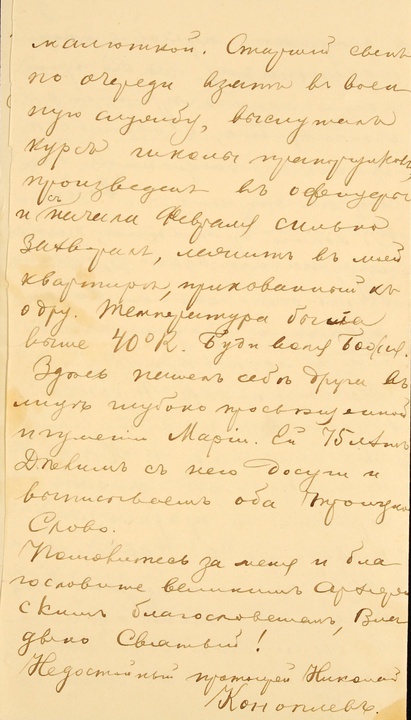 малюткой. Старший сынъ
по очереди взятъ въ воен
ную службу, выслушалъ
курсъ школы прапорщиковъ
произведенъ въ офицеры
и съ начала Февраля сильно
захворалъ, лежитъ въ моей
квартирѣ, прикованный къ
одру. Температура была
выше 40° К. Буди воля Божія.
Здѣсь нашелъ себѣ друга въ
лицѣ глубоко просвѣщенной
игуменіи Маріи. Ей 75 лѣтъ
Дѣлимъ съ нею досуги и
выписываемъ оба Троицкое
Слово.
Помолитесь за меня и бла
гословите великимъ Архіерей
скимъ благословеніемъ, Вла
дыко Святый!
Недостойный протоіерей Николай
Коноплевъ.